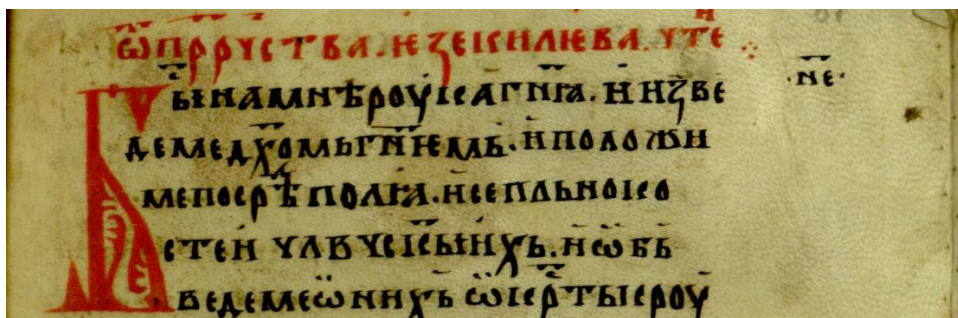 Ѿ пррчⷭтва. ѥзекилѥва. чтеⷩ
Быⷭ҇ на мнѣ роука гн҃ꙗ. и изве ·н҃е·
де ме дх҃омь гн҃ѥмь. и положи
ме посрѣⷣ полꙗ. и се пльно ко
стеи члвчⷭкыихь. и ѡбь
веде ме ѡ нихь ѡкрⷭ҇ть кроу